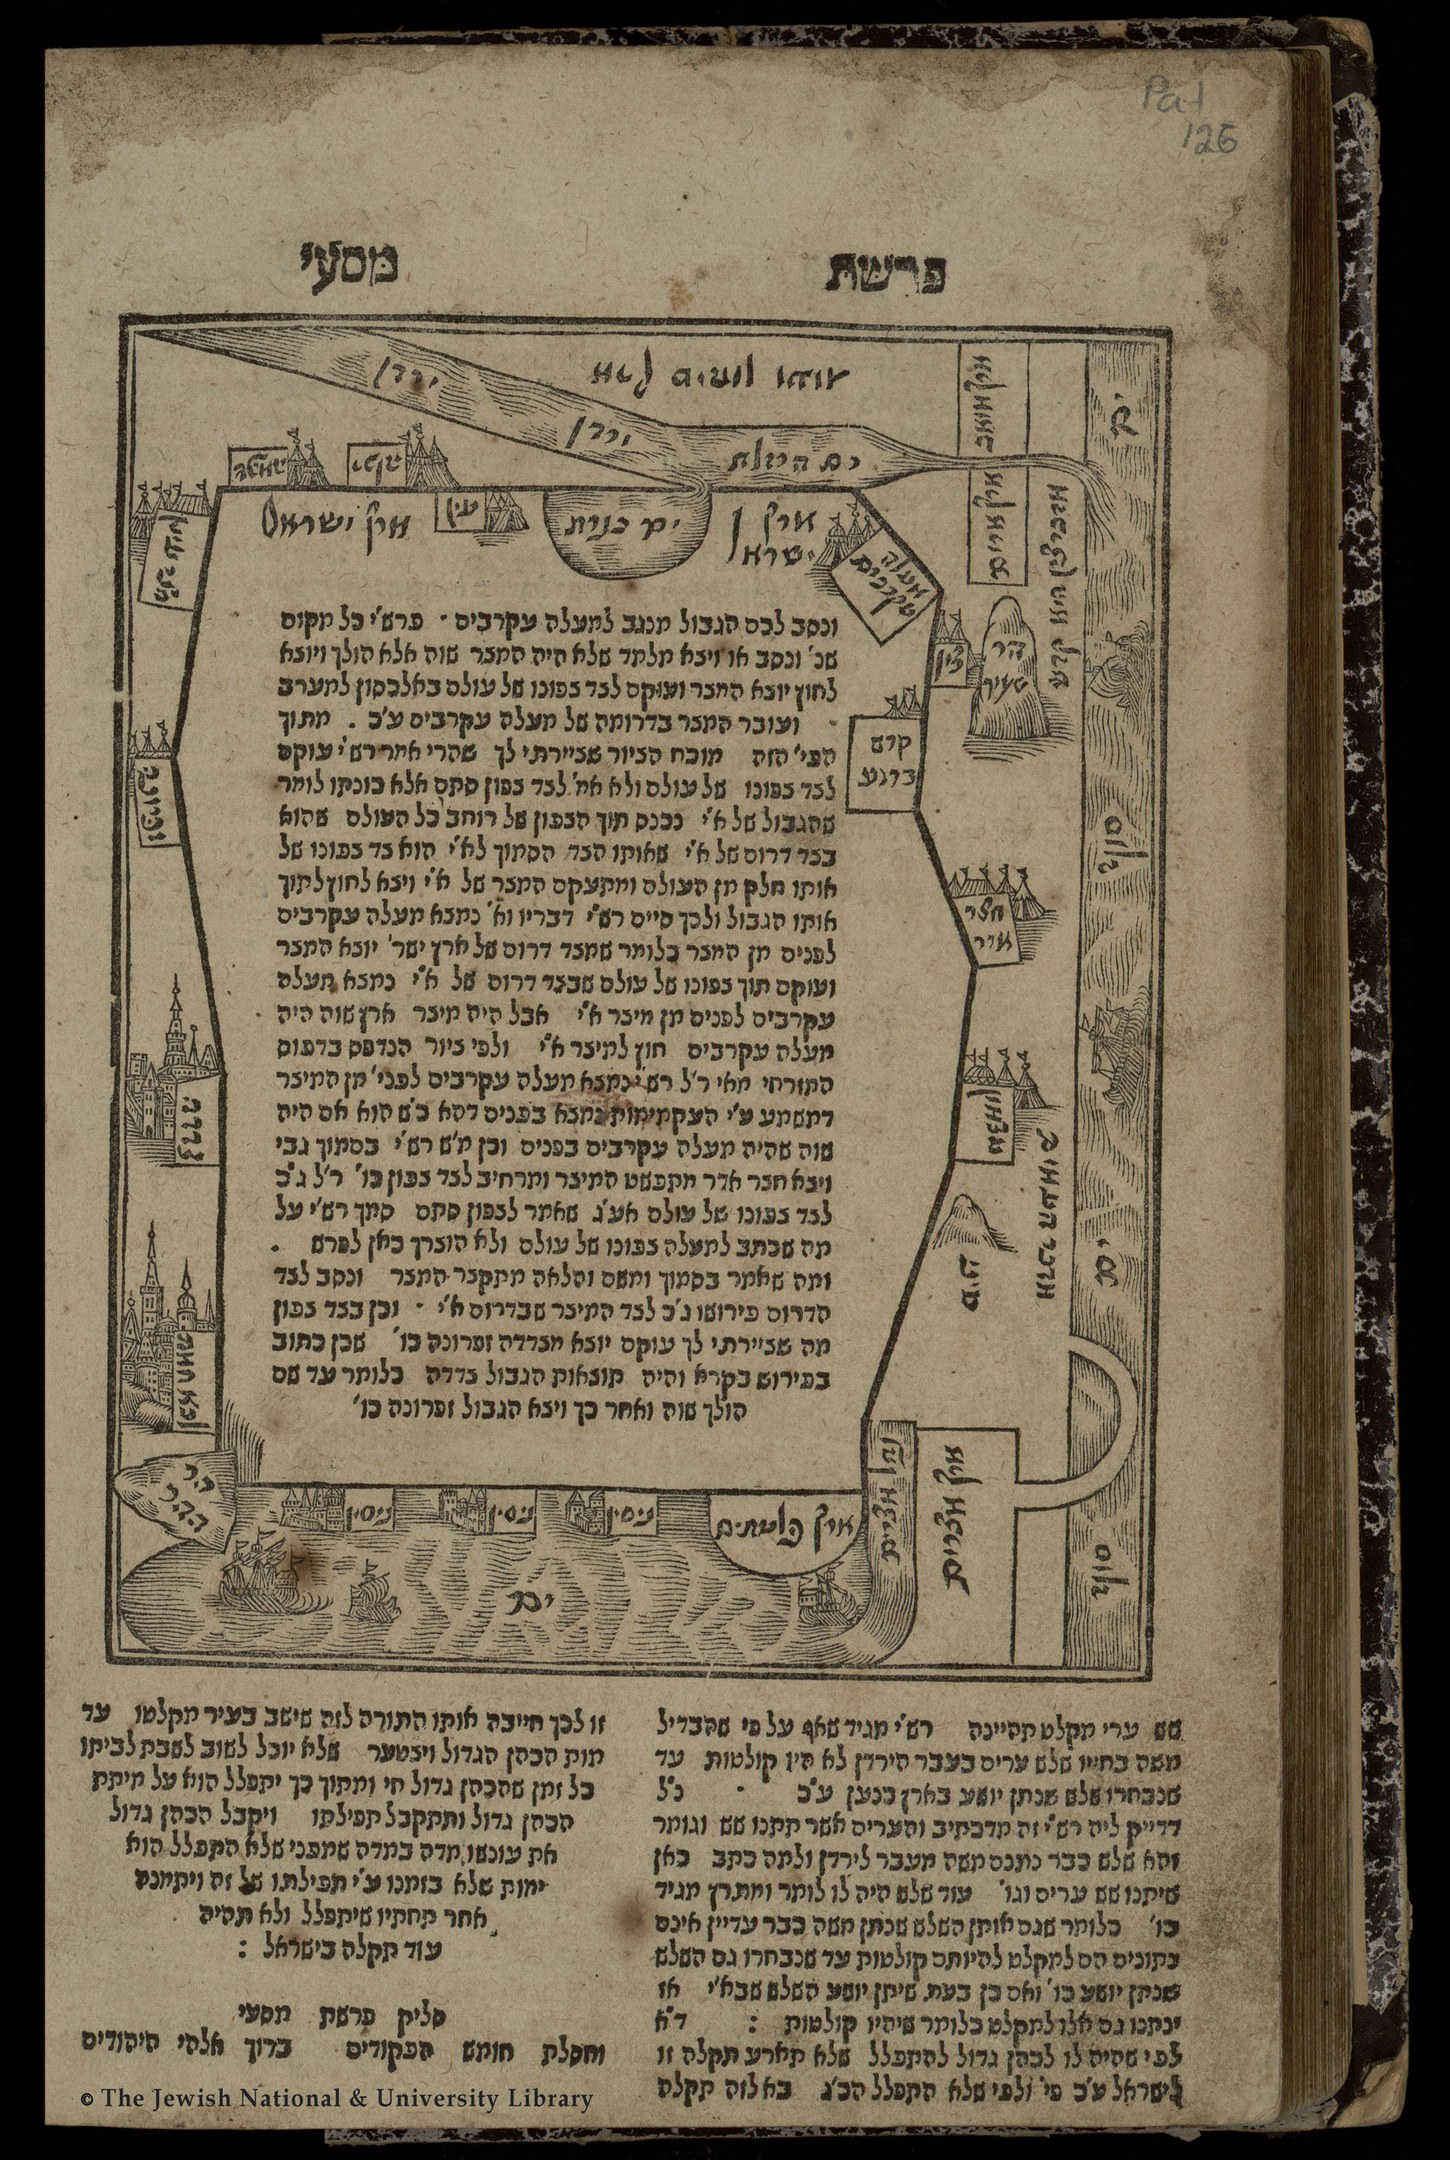 Pal
126
פרשת מסעי
ירדן
ירדן
ים המלח
ארץ מואב
ים
שפם
עין
ארץ ישראל
ים כנרת
ארץ ישראל
ארץ אדום
מעלה עקרבים
צין
הר שעיר
קדש ברנע
חצר אדר
עצמון
סוף
זפרונה
צדדה
לבא חמת
הר ההר
ים
ארץ פלשתים
נחל מצרים
ארץ מצרים
ניסין
ניסין
ניסין
ים
סוף
ונסב לכם הגבול מנגב למעלה עקרבים · פרש״י כל מקום
שנ׳ ונסב או ויצא מלמד שלא היה המצר שוה אלא הולך ויוצא
לחוץ יוצא המצר ועוקם לצד צפונו של עולם באלכסון למערב
ועובר המצר בדרומה של מעלה עקרבים ע״כ . מתוך
הפי׳ הזה מוכח הציור שציירתי לך שהרי אמר רש״י עוקם
לצד צפונו של עולם ולא אמ׳ לצד צפון סתם אלא כוונתו לומר
שהגבול של א״י נכנס תוך הצפון של רוחב כל העולם שהוא
בצד דרום של א״י שאותו הצד הסמוך לא״י הוא צד צפונו של
אותו חלק מן העולם ומתעקם המצר של א״י ויצא לחוץ לתוך
אותו הגבול ולכך סיים רש״י דבריו וא׳ נמצא מעלה עקרבים
לפנים מן המצר כלומר שמצד דרום של ארץ ישר׳ יוצא המצר
ועוקם תוך צפונו של עולם שבצד דרום של א״י נמצא מעלה
עקרבים לפנים מן מיצר א״י אבל היה מיצר ארץ שוה היה
מעלה עקרבים חוץ למיצר א״י ולפי ציור הנדפס בדפוס
המזרחי מאי ר״ל רש״י נמצא מעלה עקרבים לפני׳ מן המיצר
דמשמע ע״י העקמימות נמצא בפנים דהא כ״ש הוא אם היה
שוה שהיה מעלה עקרבים בפנים וכן מ״ש רש״י בסמוך גבי
ויצא חצר אדר מתפשט המיצר ומרחיב לצד צפון כו׳ ר״ל ג״כ
לצד צפונו של עולם אע״ג שאמר לצפון סתם סמך רש״י על
מה שכתב למעלה צפונו של עולם ולא הוצרך כאן לפרש .
ומה שאמר בסמוך ומשם והלאה מתקצר המצר ונסב לצד
הדרום פירושו ג״כ לצד המיצר שבדרום א״י · וכן בצד צפון
מה שציירתי לך עוקם יוצא מצדדה זפרונה כו׳ שכן כתוב
בפירוש בקרא והיה תוצאות הגבול צדדה כלומר עד שם
הולך שוה ואחר כך ויצא הגבול זפרונה כו׳
שש ערי מקלט תהיינה רש״י מגיד שאף על פי שהבדיל
משה בחייו שלש ערים בעבר הירדן לא היו קולטות עד
שנבחרו שלש שנתן יושע בארץ כנען ע״כ · נ״ל
דדייק ליה רש״י זה מדכתיב והערים אשר תתנו שש וגומר
והא שלש כבר נתנם משה מעבר לירדן ולמה כתב כאן
שיתנו שש ערים וגו׳ עוד שלש היה לו לומר ומתרץ מגיד
כו׳ כלומר שגם אותן השלש שנתן משה כבר עדיין אינם
נתונים הם למקלט להיותם קולטות עד שנבחרו גם השלש
שנתן יושע כו׳ ואם כן בעת שיתן יושע השלש שבא״י אז
ינתנו גם אלו למקלט כלומר שיהיו קולטות : ד״א
לפי שהיה לו לכהן גדול להתפלל שלא תארע תקלה זו
לישראל ע״כ פי׳ ולפי שלא התפלל הכ״ג באלזה תקלה
זו לכך חייבה אותו התורה לזה שישב בעיר מקלטו עד
מות הכהן הגדול ויצטער שלא יוכל לשוב לשבת לביתו
כל זמן שהכהן גדול חי ומתוך כך יתפלל הוא על מיתת
הכהן גדול ותתקבל תפילתו ויקבל הכהן גדול
את עונשו מדה במדה שמפני שלא התפלל הוא
ימות שלא בזמנו ע״י תפילתו של זה ויתמנה
אחר תחתיו שיתפלל ולא תהיה
עוד תקלה בישראל :
סליק פרשת מסעי
וחסלת חומש הפקודים ברוך אלהי היהודים
© The Jewish National & University Library